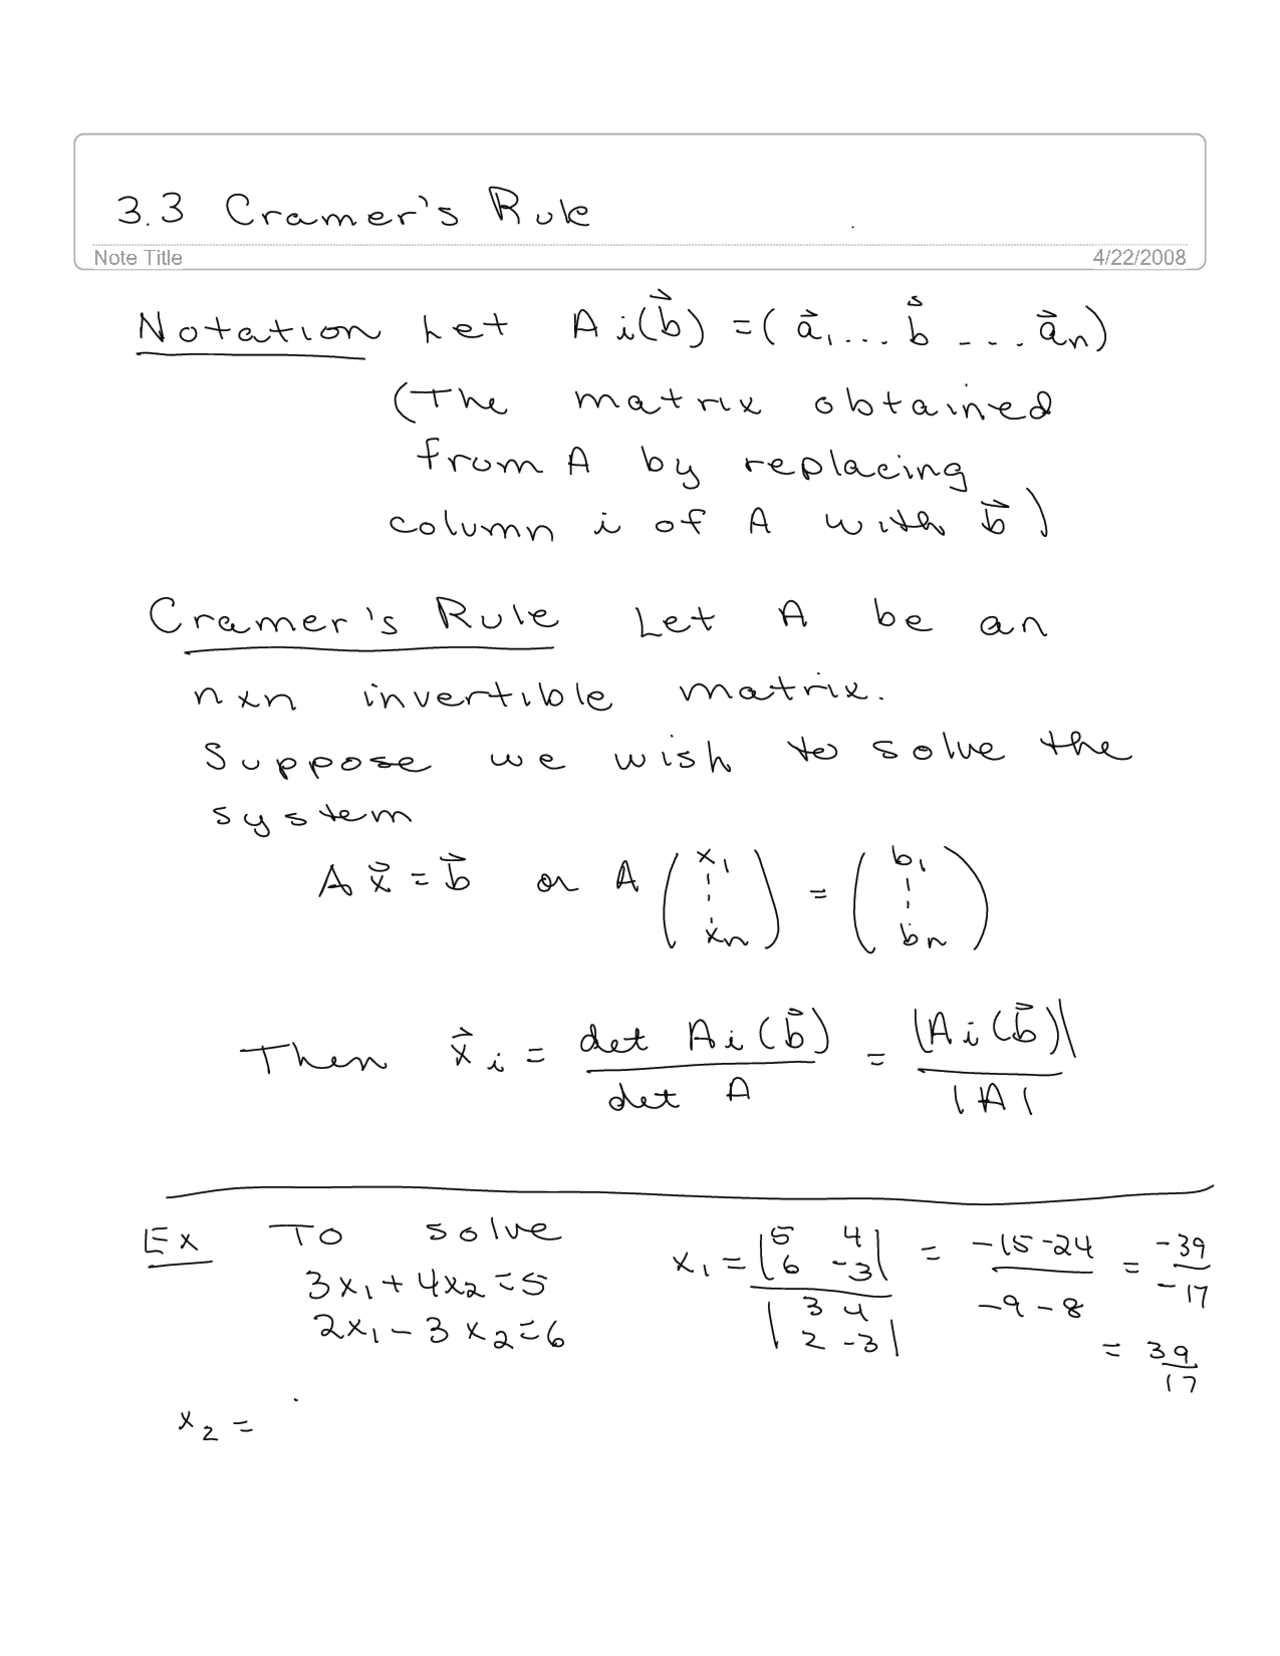 3.3 Cramer's Rule
Note Title 4/22/2008
Notation Let Ai(b⃗) = (a⃗₁... b⃗ ... a⃗n)
(The matrix obtained
from A by replacing
column i of A with b⃗)
Cramer's Rule Let A be an
nxn invertible matrix.
Suppose we wish to solve the
system
A x⃗ = b⃗ or A (x₁ ⋮ xn) = (b₁ ⋮ bn)
Then x⃗i = det Ai(b⃗) / det A = |Ai(b⃗)| / |A|
Ex To solve
3x₁ + 4x₂ = 5
2x₁ - 3x₂ = 6
x₁ = |5 4 6 -3| / |3 4 2 -3| = -15-24 / -9-8 = -39 / -17
= 39/17
x₂ =